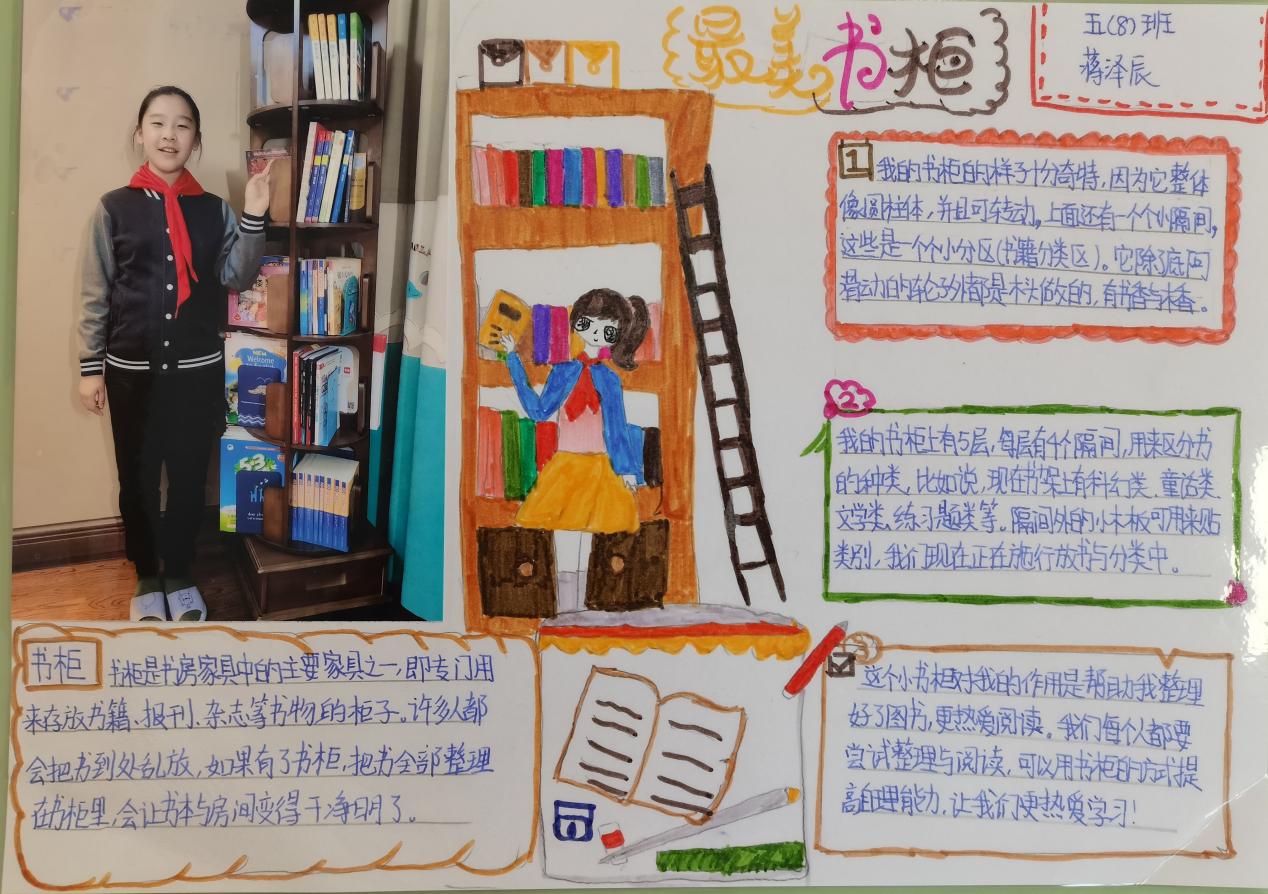 最美书柜
五(8)班
蒋泽辰
1 我的书柜的样子十分奇特,因为它整体
像圆柱体,并且可转动。上面还有一个个小隔间,
这些是一个个小分区(书籍分类区)。它除了底凹
着动的轮子外都是木头做的,有书香与木香。
2
我的书柜上有5层,每层有4个隔间,用来区分书
的种类,比如说,现在书架上有科幻类、童话类、
文学类、练习题类等。隔间外的小木板可用来贴
类别,我们现在正在施行放书与分类中。
书柜 书柜是书房家具中的主要家具之一,即专门用
来存放书籍、报刊、杂志等书物的柜子。许多人都
会把书到处乱放,如果有了书柜,把书全部整理
在书柜里,会让书本与房间变得干净明了。
3
这个小书柜对我的作用是帮助我整理
好了图书,更热爱阅读。我们每个人都要
尝试整理与阅读,可以用书柜的方式提
高自理能力,让我们更热爱学习!
NEW
Welcome
5·3